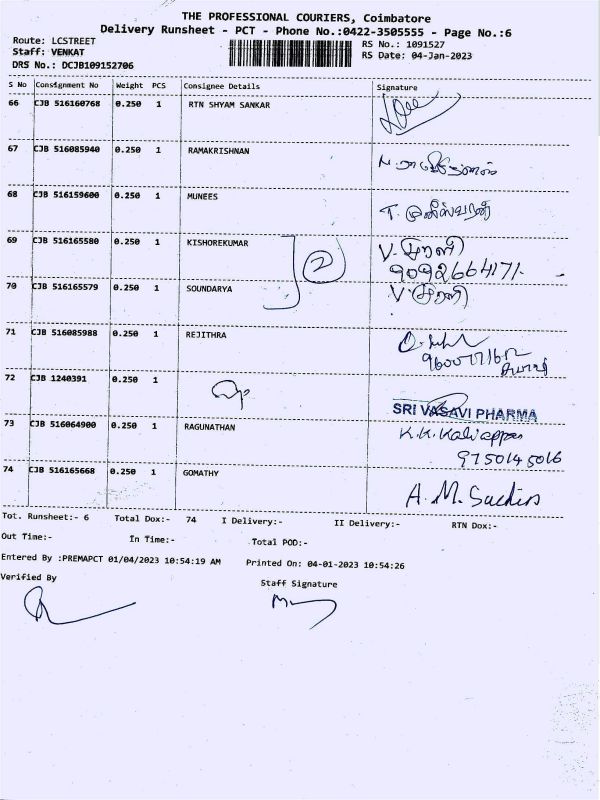 THE PROFESSIONAL COURIERS, Coimbatore
Delivery Runsheet - PCT - Phone No.:0422-3505555 - Page No.:6
Route: LCSTREET
RS No.: 1091527
Staff: VENKAT
RS Date: 04-Jan-2023
DRS No.: DCJB109152706
S No Consignment No Weight PCS Consignee Details Signature
66 CJB 516160768 0.250 1 RTN SHYAM SANKAR
67 CJB 516085940 0.250 1 RAMAKRISHNAN
68 CJB 516159600 0.250 1 MUNEES T. முனீஸ்வரன்
69 CJB 516165580 0.250 1 KISHOREKUMAR 2 V. முரளி
9092664171
70 CJB 516165579 0.250 1 SOUNDARYA V முரளி
71 CJB 516085988 0.250 1 REJITHRA
72 CJB 1240391 0.250 1 SRI VASAVI PHARMA
73 CJB 516064900 0.250 1 RAGUNATHAN K.K. Kaliappan
9750145016
74 CJB 516165668 0.250 1 GOMATHY A. M. Sachin
Tot. Runsheet:- 6 Total Dox:- 74 I Delivery:- II Delivery:- RTN Dox:-
Out Time:- In Time:- Total POD:-
Entered By :PREMAPCT 01/04/2023 10:54:19 AM Printed On: 04-01-2023 10:54:26
Verified By Staff Signature